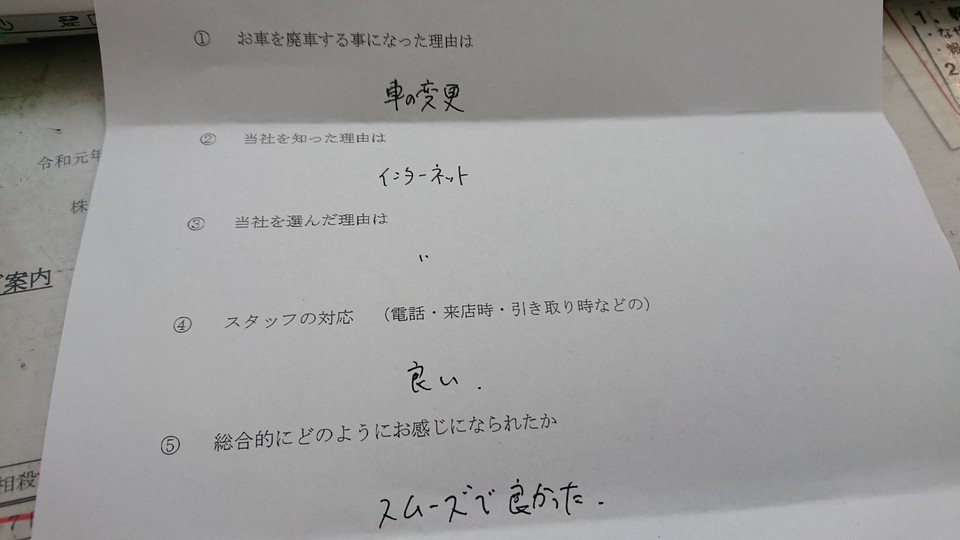 ① お車を廃車する事になった理由は
車の変更
② 当社を知った理由は
インターネット
③ 当社を選んだ理由は
〃
④ スタッフの対応 （電話・来店時・引き取り時などの）
良い.
⑤ 総合的にどのようにお感じになられたか
スムーズで良かった.
令和元年
株
案内
相殺
1、
・なぜ
2